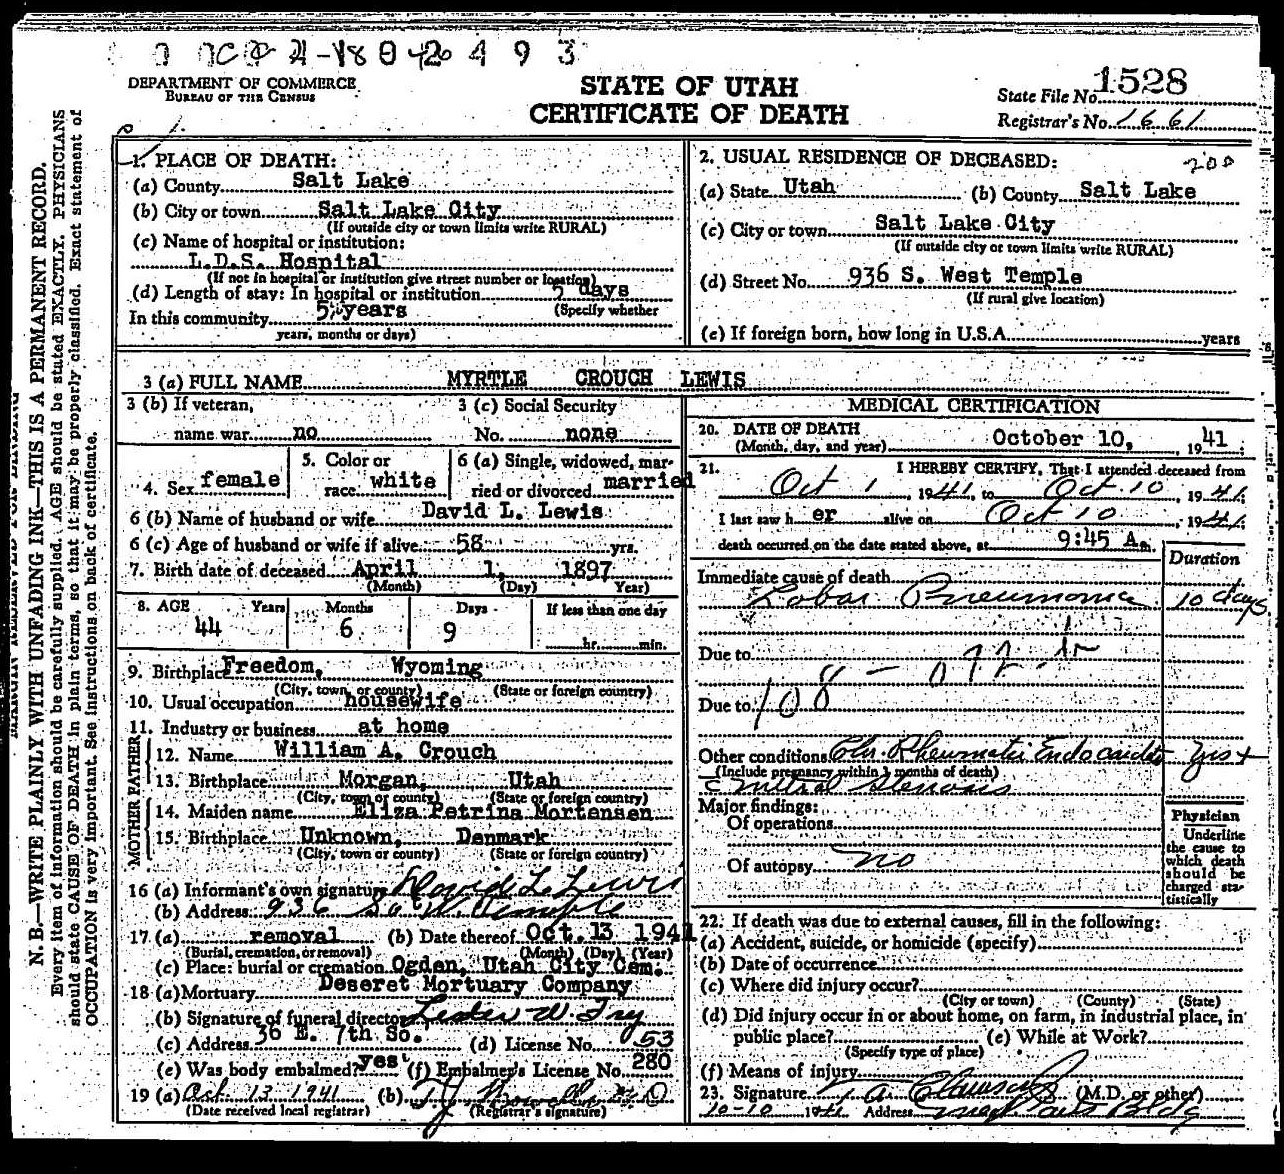 4 9 3
DEPARTMENT OF COMMERCE
BUREAU OF THE CENSUS
STATE OF UTAH
CERTIFICATE OF DEATH
State File No. 1528
Registrar's No. 1661
N. B.—WRITE PLAINLY WITH UNFADING INK—THIS IS A PERMANENT RECORD.
Every item of information should be carefully supplied. AGE should be stated EXACTLY. PHYSICIANS
should state CAUSE OF DEATH in plain terms, so that it may be properly classified. Exact statement of
OCCUPATION is very important. See instructions on back of certificate.
1. PLACE OF DEATH:
(a) County Salt Lake
(b) City or town Salt Lake City
(If outside city or town limits write RURAL)
(c) Name of hospital or institution:
L.D.S. Hospital
(If not in hospital or institution give street number or location)
(d) Length of stay: In hospital or institution 5 days
(Specify whether
In this community years
years, months or days)
2. USUAL RESIDENCE OF DECEASED: 200
(a) State Utah (b) County Salt Lake
(c) City or town Salt Lake City
(If outside city or town limits write RURAL)
(d) Street No. 936 S. West Temple
(If rural give location)
(e) If foreign born, how long in U.S.A. years
3 (a) FULL NAME MYRTLE CROUCH LEWIS
3 (b) If veteran, 3 (c) Social Security
name war no No. none
4. Sex female 5. Color or race white 6 (a) Single, widowed, married or divorced married
6 (b) Name of husband or wife David L. Lewis
6 (c) Age of husband or wife if alive 58 yrs.
7. Birth date of deceased April 1, 1897
(Month) (Day) Year)
8. AGE Years Months Days If less than one day
44 6 9 hr. min.
9. Birthplace Freedom, Wyoming
(City, town, or county) (State or foreign country)
10. Usual occupation housewife
11. Industry or business at home
FATHER
12. Name William A. Crouch
13. Birthplace Morgan, Utah
(City, town or county) (State or foreign country)
MOTHER
14. Maiden name Eliza Petrina Mortensen
15. Birthplace Unknown, Denmark
(City, town or county) (State or foreign country)
16 (a) Informant's own signature David L. Lewis
(b) Address 936 So W. Temple
17 (a) removal (b) Date thereof Oct. 13 1941
(Burial, cremation, or removal) (Month) (Day) (Year)
(c) Place: burial or cremation Ogden, Utah City Cem.
18 (a) Mortuary Deseret Mortuary Company
(b) Signature of funeral director
(c) Address 36 E. 7th So. (d) License No. 53
(e) Was body embalmed? yes (f) Embalmer's License No. 280
19 (a) Oct. 13 1941 (b)
(Date received local registrar) (Registrar's signature)
MEDICAL CERTIFICATION
20. DATE OF DEATH
(Month, day, and year) October 10, 1941
21. I HEREBY CERTIFY, That I attended deceased from
Oct 1, 1941, to Oct 10, 1941
I last saw her alive on Oct 10, 1941
death occurred on the date stated above, at 9:45 A.m.
Duration
Immediate cause of death
Lobar Pneumonia 10 days
Due to
Due to 108
Other conditions Chr. Rheumatic Endocarditis yrs +
(Include pregnancy within 3 months of death)
c mitral stenosis
Major findings:
Of operations
Of autopsy no
Physician
Underline
the cause to
which death
should be
charged sta-
tistically
22. If death was due to external causes, fill in the following:
(a) Accident, suicide, or homicide (specify)
(b) Date of occurrence
(c) Where did injury occur?
(City or town) (County) (State)
(d) Did injury occur in or about home, on farm, in industrial place, in
public place? (e) While at Work?
(Specify type of place)
(f) Means of injury
23. Signature (M.D. or other)
10-10 1941 Address Bldg